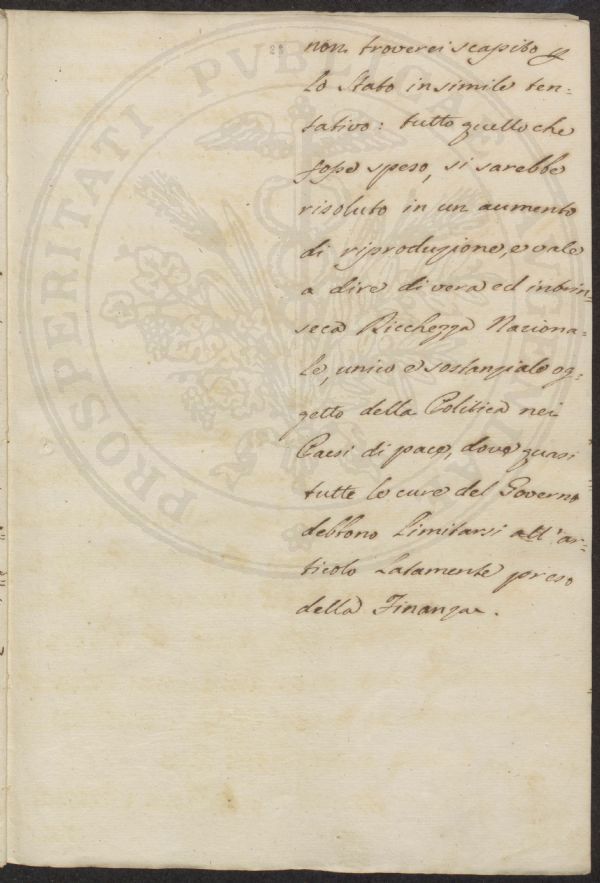 28
non troverei scapito p
lo Stato in simile ten=
tativo: tutto quello che
fosse speso, si sarebbe
risoluto in un aumento
di riproduzione, e vale
a dire di vera ed intrin=
seca Ricchezza Naciona=
le, unico e sostanziale og=
getto della Politica nei
Paesi di pace, dove quasi
tutte le cure del Governo
debbono limitarsi all'ar=
ticolo Latamente preso
della Finanza.
PROSPERITATI PUBLICAE